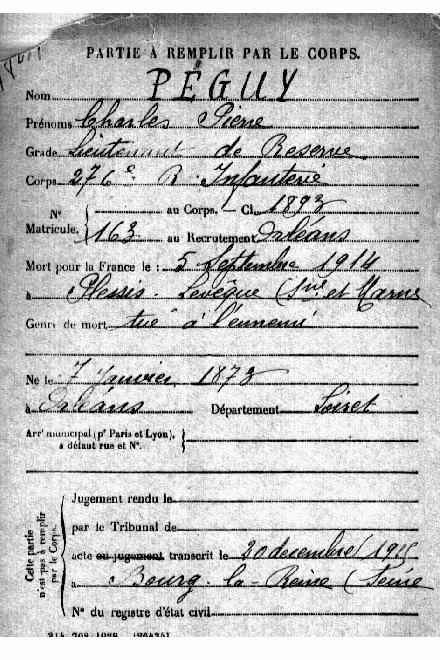 PARTIE À REMPLIR PAR LE CORPS.
Nom PÉGUY
Prénoms Charles Pierre
Grade Lieutenant de Réserve
Corps 276e R Infanterie
N° au Corps. — Cl. 1893
Matricule. 163 au Recrutement Orléans
Mort pour la France le : 5 Septembre 1914
à Plessis-Levêque (Sne et Marne
Genre de mort tué à l'ennemi
Né le 7 Janvier 1873
à Orléans Département Loiret
Arrt municipal (pr Paris et Lyon),
à défaut rue et N°.
Cette partie
n'est pas à remplir
par le Corps.
Jugement rendu le
par le Tribunal de
acte ou jugement transcrit le 20 décembre 1915
à Bourg-la-Reine (Seine
N° du registre d'état civil